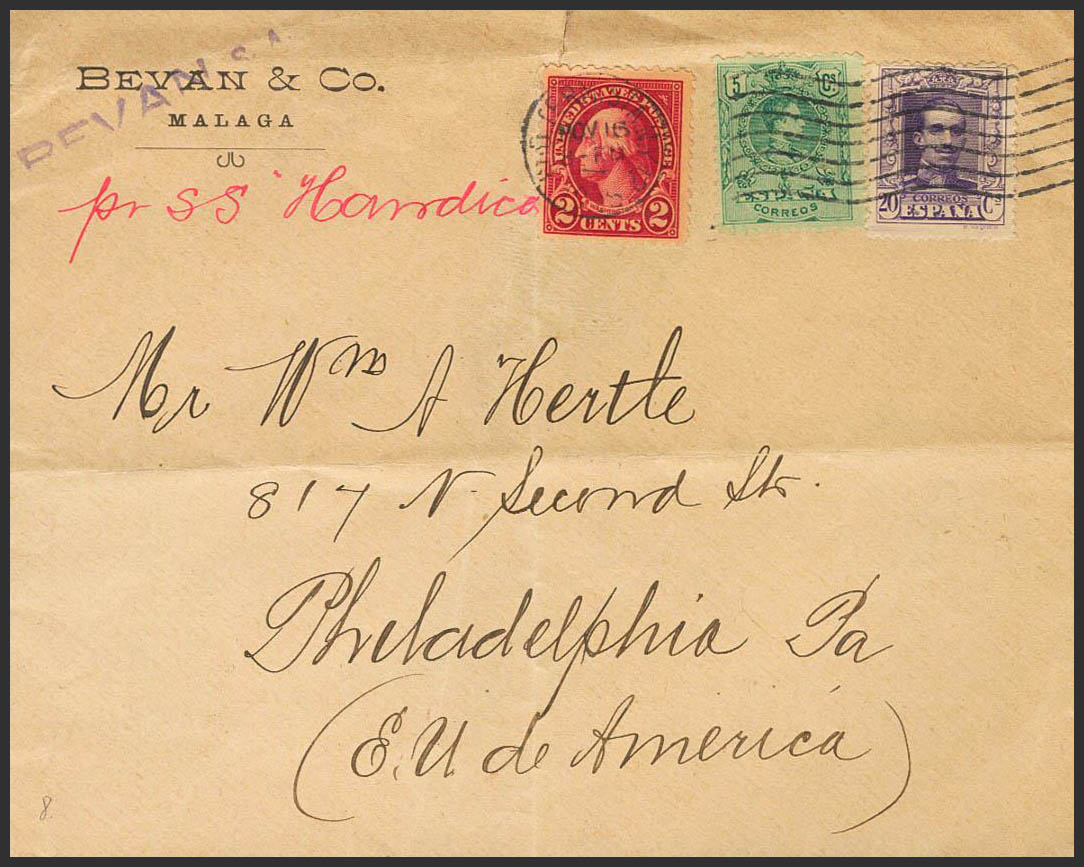 BEVAN & Co.
MALAGA
BEVAN S.A.
pr SS "Handicap
UNITED STATES POSTAGE
2 CENTS 2
NOV 16
5 Cs.
CORREOS
CORREOS
20 ESPAÑA Cs
Mr Wm A Hertle
817 N. Second Str.
Philadelphia Pa
(E.U de America)
8.